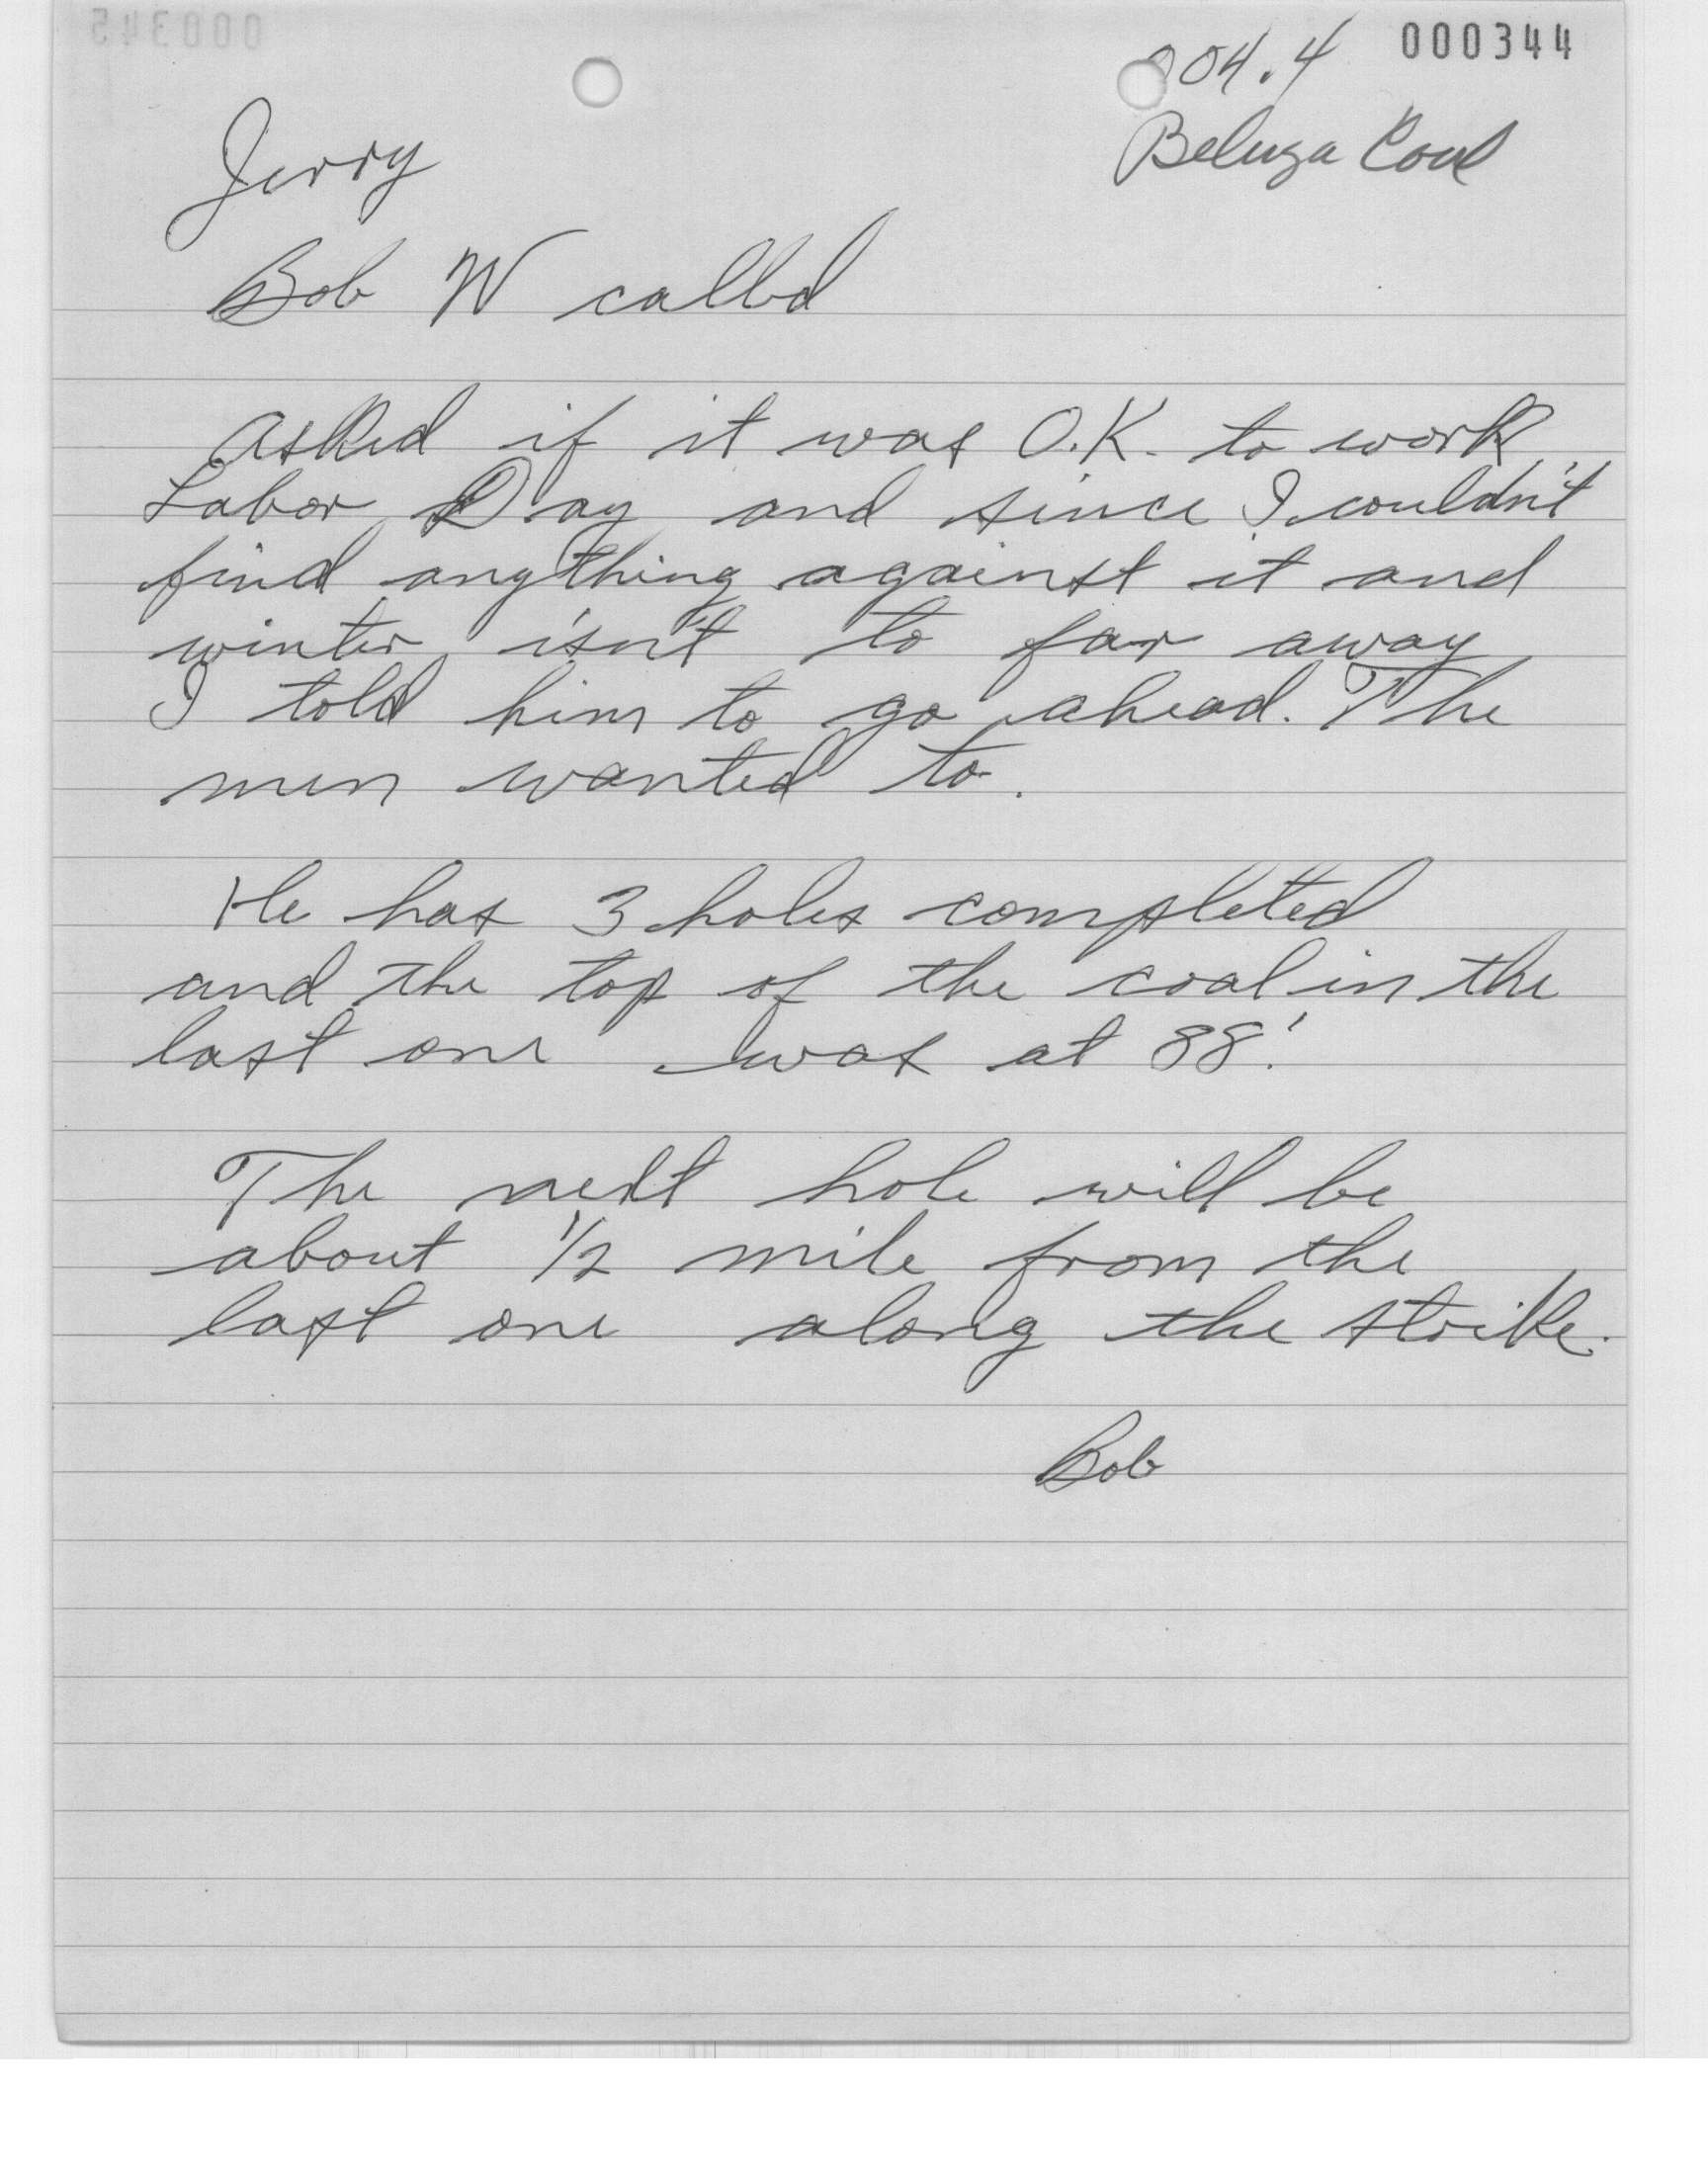 000344
204.4
Beluga Coal
Jerry
Bob W called
Asked if it was O.K. to work
Labor Day and since I couldn't
find anything against it and
winter isn't to far away
I told him to go ahead. The
men wanted to.
He has 3 holes completed
and the top of the coal in the
last one was at 88'.
The next hole will be
about 1/2 mile from the
last one along the strike.
Bob